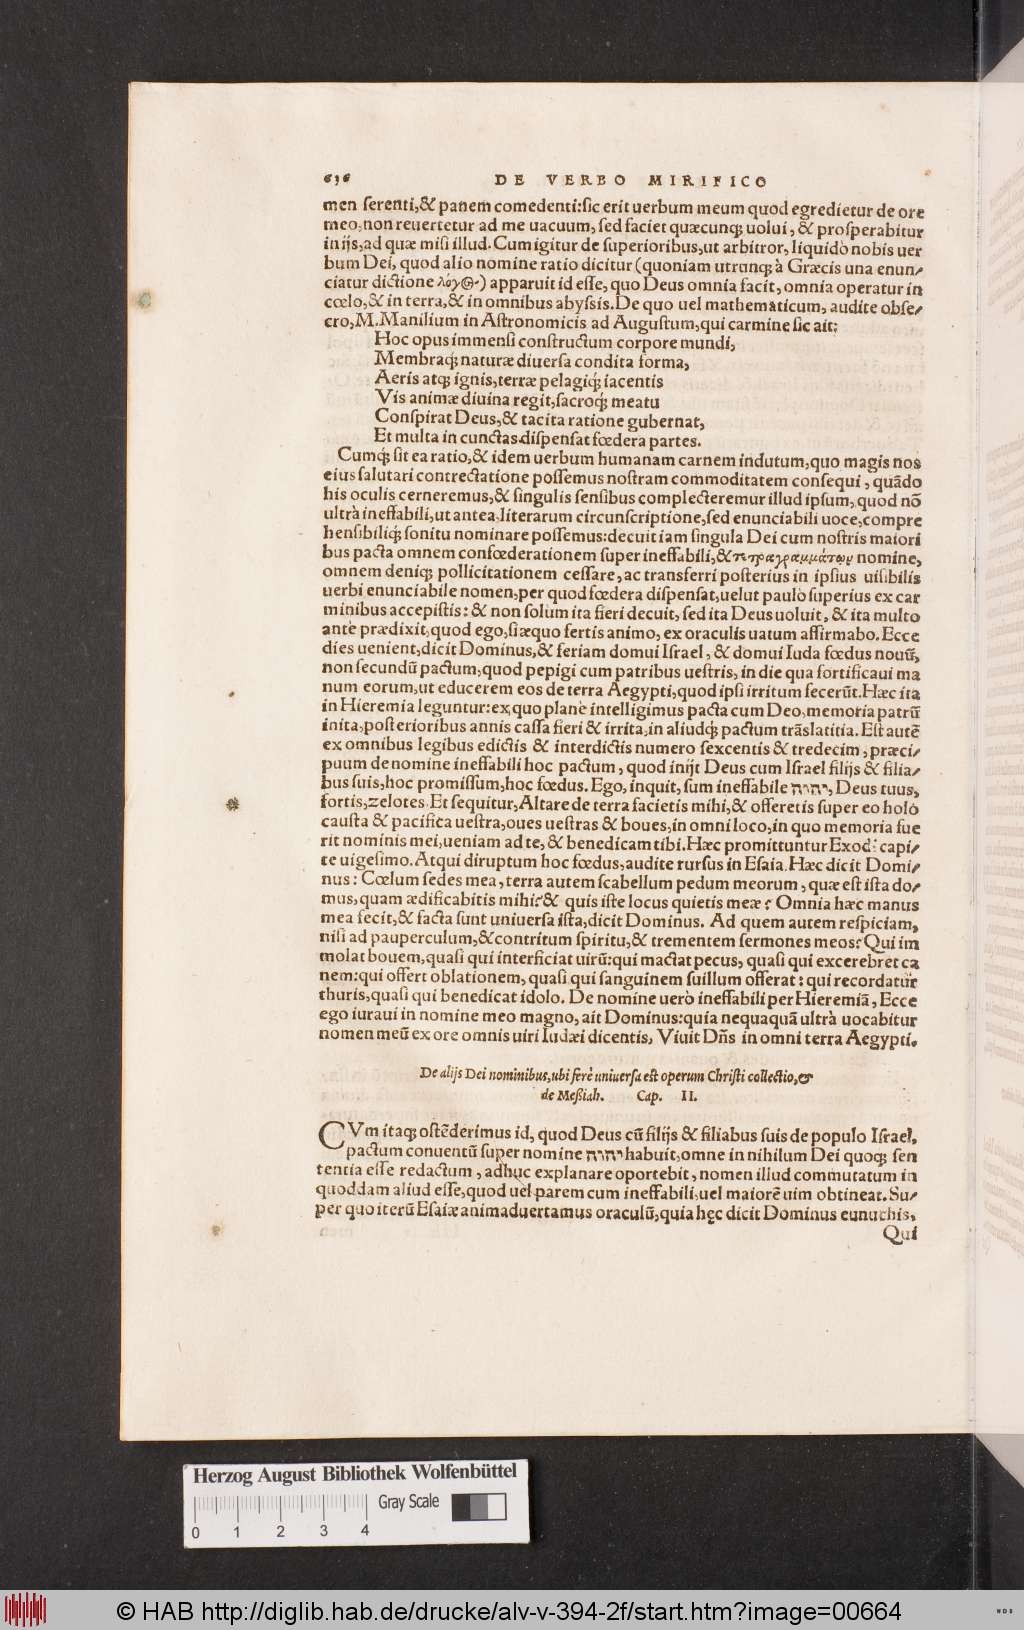 636 DE VERBO MIRIFICO
men ſerenti,& panem comedenti:ſic erit uerbum meum quod egredietur de ore
meo,non reuertetur ad me uacuum, ſed faciet quæcunq; uolui, & proſperabitur
in ijs,ad quæ miſi illud. Cum igitur de ſuperioribus,ut arbitror, liquidò nobis uer
bum Dei, quod alio nomine ratio dicitur (quoniam utrunq; à Græcis una enun/
ciatur dictione λόγ⊙-) apparuit id eſſe, quo Deus omnia facit, omnia operatur in
cœlo,& in terra,& in omnibus abyſsis. De quo uel mathematicum, audite obſe/
cro,M.Manilium in Aſtronomicis ad Auguſtum,qui carmine ſic ait:
Hoc opus immenſi conſtructum corpore mundi,
Membraq; naturæ diuerſa condita forma,
Aeris atq; ignis,terræ pelagiq; iacentis
Vis animæ diuina regit,ſacroq; meatu
Conſpirat Deus,& tacita ratione gubernat,
Et multa in cunctas diſpenſat fœdera partes.
Cumq; ſit ea ratio,& idem uerbum humanam carnem indutum,quo magis nos
eius ſalutari contrectatione poſſemus noſtram commoditatem conſequi, quãdo
his oculis cerneremus,& ſingulis ſenſibus complecteremur illud ipſum, quod nõ
ultrà ineffabili,ut antea,literarum circunſcriptione,ſed enunciabili uoce,compre
henſibiliq; ſonitu nominare poſſemus:decuit iam ſingula Dei cum noſtris maiori
bus pacta omnem confœderationem ſuper ineffabili,& τετραγραμμάτων nomine,
omnem deniq; pollicitationem ceſſare, ac transferri poſterius in ipſius uiſibilis
uerbi enunciabile nomen,per quod fœdera diſpenſat,uelut paulò ſuperius ex car
minibus accepiſtis: & non ſolùm ita fieri decuit, ſed ita Deus uoluit, & ita multo
antè prædixit,quod ego,ſi æquo fertis animo, ex oraculis uatum affirmabo. Ecce
dies uenient,dicit Dominus,& feriam domui Iſrael, & domui Iuda fœdus nouũ,
non ſecundũ pactum,quod pepigi cum patribus ueſtris, in die qua fortificaui ma
num eorum,ut educerem eos de terra Aegypti,quod ipſi irritum fecerũt. Hæc ita
in Hieremia leguntur:ex quo planè intelligimus pacta cum Deo,memoria patrũ
inita,poſterioribus annis caſſa fieri & irrita,in aliudq; pactum trãſlatitia. Eſt autẽ
ex omnibus legibus edictis & interdictis numero ſexcentis & tredecim, præci/
puum de nomine ineffabili hoc pactum, quod inijt Deus cum Iſrael filijs & filia/
bus ſuis,hoc promiſſum,hoc fœdus. Ego, inquit, ſum ineffabile יהוה, Deus tuus,
fortis,zelotes. Et ſequitur, Altare de terra facietis mihi,& offeretis ſuper eo holo
cauſta & pacifica ueſtra,oues ueſtras & boues,in omni loco,in quo memoria fue
rit nominis mei,ueniam ad te, & benedicam tibi. Hæc promittuntur Exod: capi/
te uigeſimo. Atqui diruptum hoc fœdus,audite rurſus in Eſaia. Hæc dicit Domi/
nus: Cœlum ſedes mea, terra autem ſcabellum pedum meorum, quæ eſt iſta do/
mus,quam ædificabitis mihi?& quis iſte locus quietis meæ? Omnia hæc manus
mea fecit,& facta ſunt uniuerſa iſta,dicit Dominus. Ad quem autem reſpiciam,
niſi ad pauperculum,& contritum ſpiritu,& trementem ſermones meos? Qui im
molat bouem,quaſi qui interficiat uirũ:qui mactat pecus, quaſi qui excerebret ca
nem:qui offert oblationem, quaſi qui ſanguinem ſuillum offerat: qui recordatur
thuris,quaſi qui benedicat idolo. De nomine uerò ineffabili per Hieremiã, Ecce
ego iuraui in nomine meo magno, ait Dominus:quia nequaquã ultrà uocabitur
nomen meũ ex ore omnis uiri Iudæi dicentis, Viuit Dñs in omni terra Aegypti.
De alijs Dei nominibus,ubi ferè uniuerſa eſt operum Chriſti collectio,&
de Meßiah. Cap. II.
CVm itaq; oſtẽderimus id, quod Deus cũ filijs & filiabus ſuis de populo Iſrael,
pactum conuentũ ſuper nomine יהוה habuit,omne in nihilum Dei quoq; ſen
tentia eſſe redactum, adhuc explanare oportebit, nomen illud commutatum in
quoddam aliud eſſe,quod uel parem cum ineffabili,uel maiorẽ uim obtineat. Su/
per quo iterũ Eſaiæ animaduertamus oraculũ,quia hęc dicit Dominus eunuchis,
Qui
Herzog August Bibliothek Wolfenbüttel
Gray Scale
0 1 2 3 4
© HAB http://diglib.hab.de/drucke/alv-v-394-2f/start.htm?image=00664